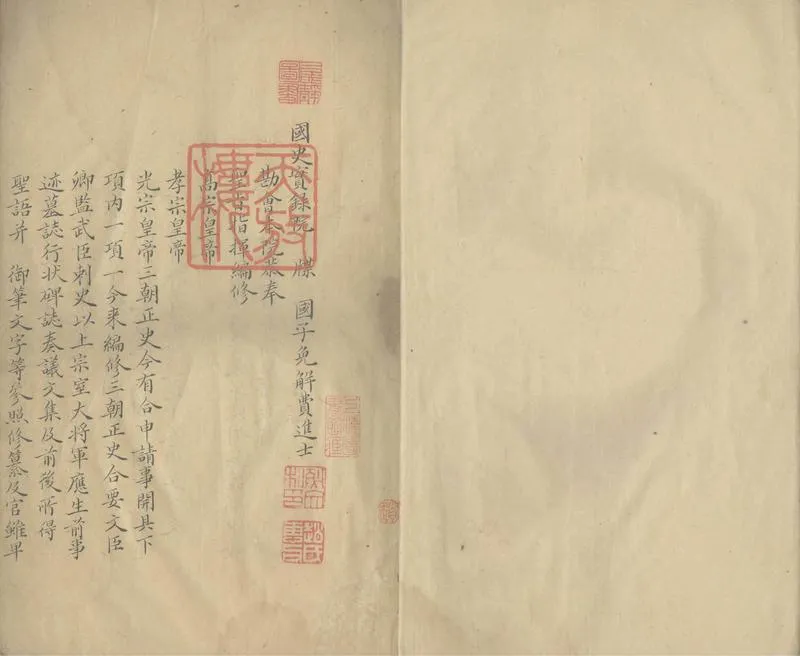 國史實錄院　牒　國子免解費進士
勘會本院恭奉
聖旨指揮編修
高宗皇帝
孝宗皇帝
光宗皇帝三朝正史今有合申請事開具下
項内一項一今来編修三朝正史合要文臣
卿監武臣刺史以上宗室大將軍應生前事
迹墓誌行状碑誌奏議文集及前後所得
聖語并　御筆文字等參照修纂及官雖卑